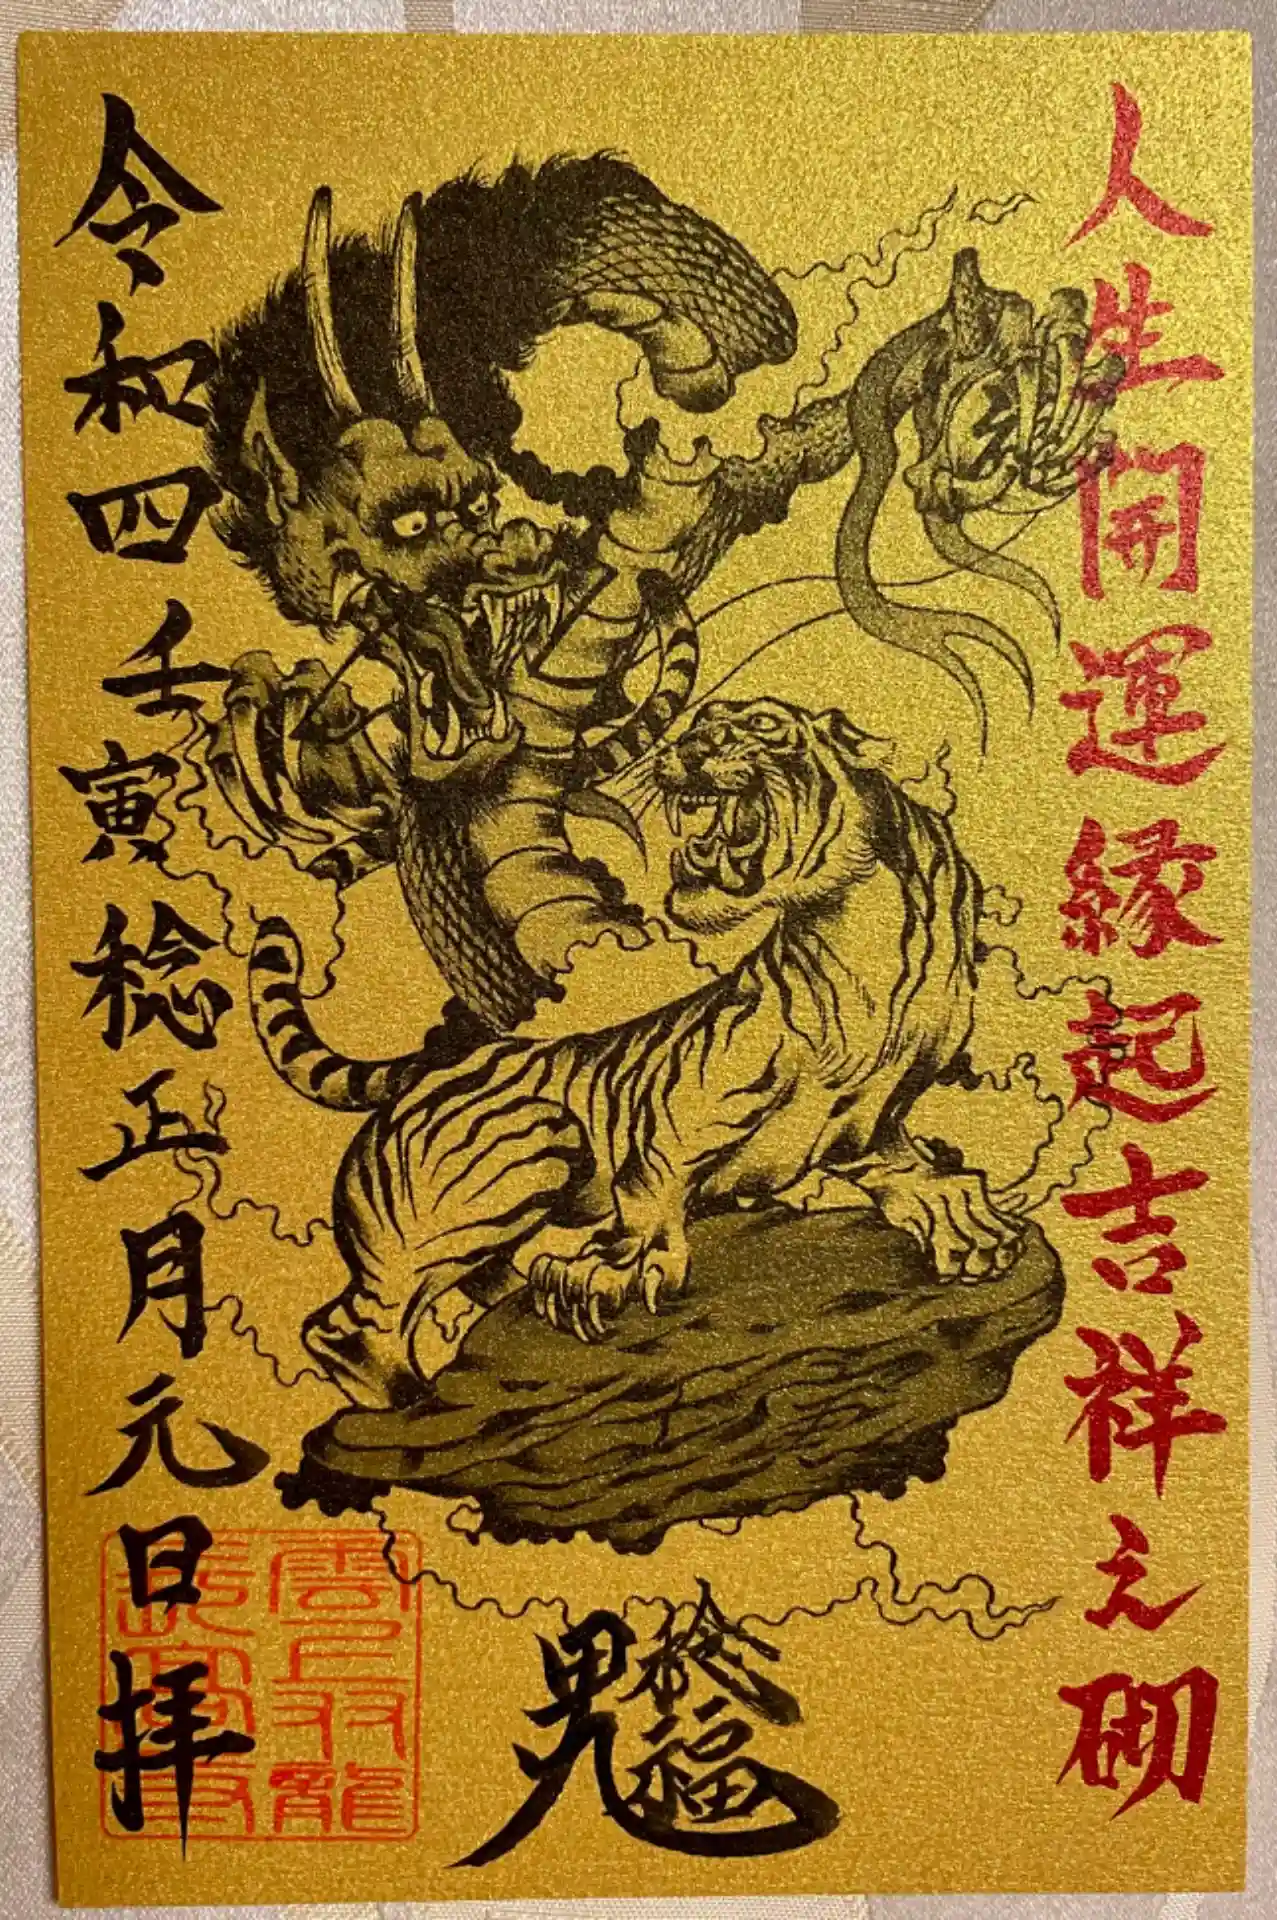 人生開運縁起吉祥之砌
令和四壬寅稔正月元日拝
稔福